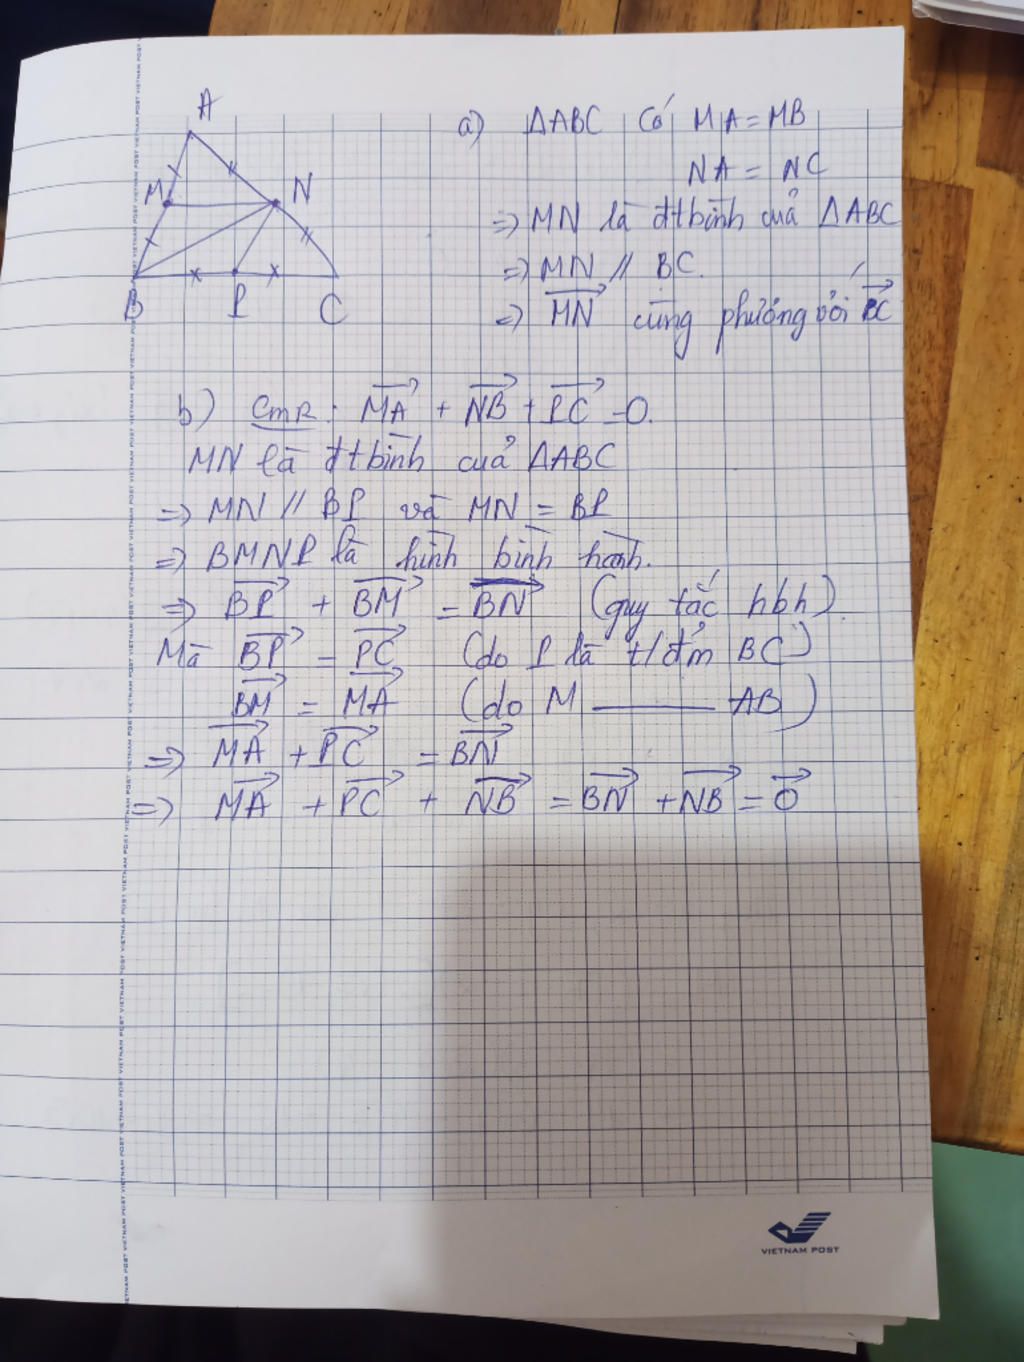 A
M
N
B
P
C
a) ΔABC Có MA = MB
NA = NC
=> MN là đtbình củả ΔABC
=> MN // BC.
=> MN cùng phương với BC
b) CmR: MA + NB + PC = 0.
MN là đtbình củả ΔABC
=> MN // BP và MN = BP
=> BMNP là hình bình hành.
=> BP + BM = BN (quy tắc hbh)
Mà BP = PC (do P là t/điểm BC)
BM = MA (do M ——— AB)
=> MA + PC = BN
=> MA + PC + NB = BN + NB = 0
VIETNAM POST
VIETNAM POST